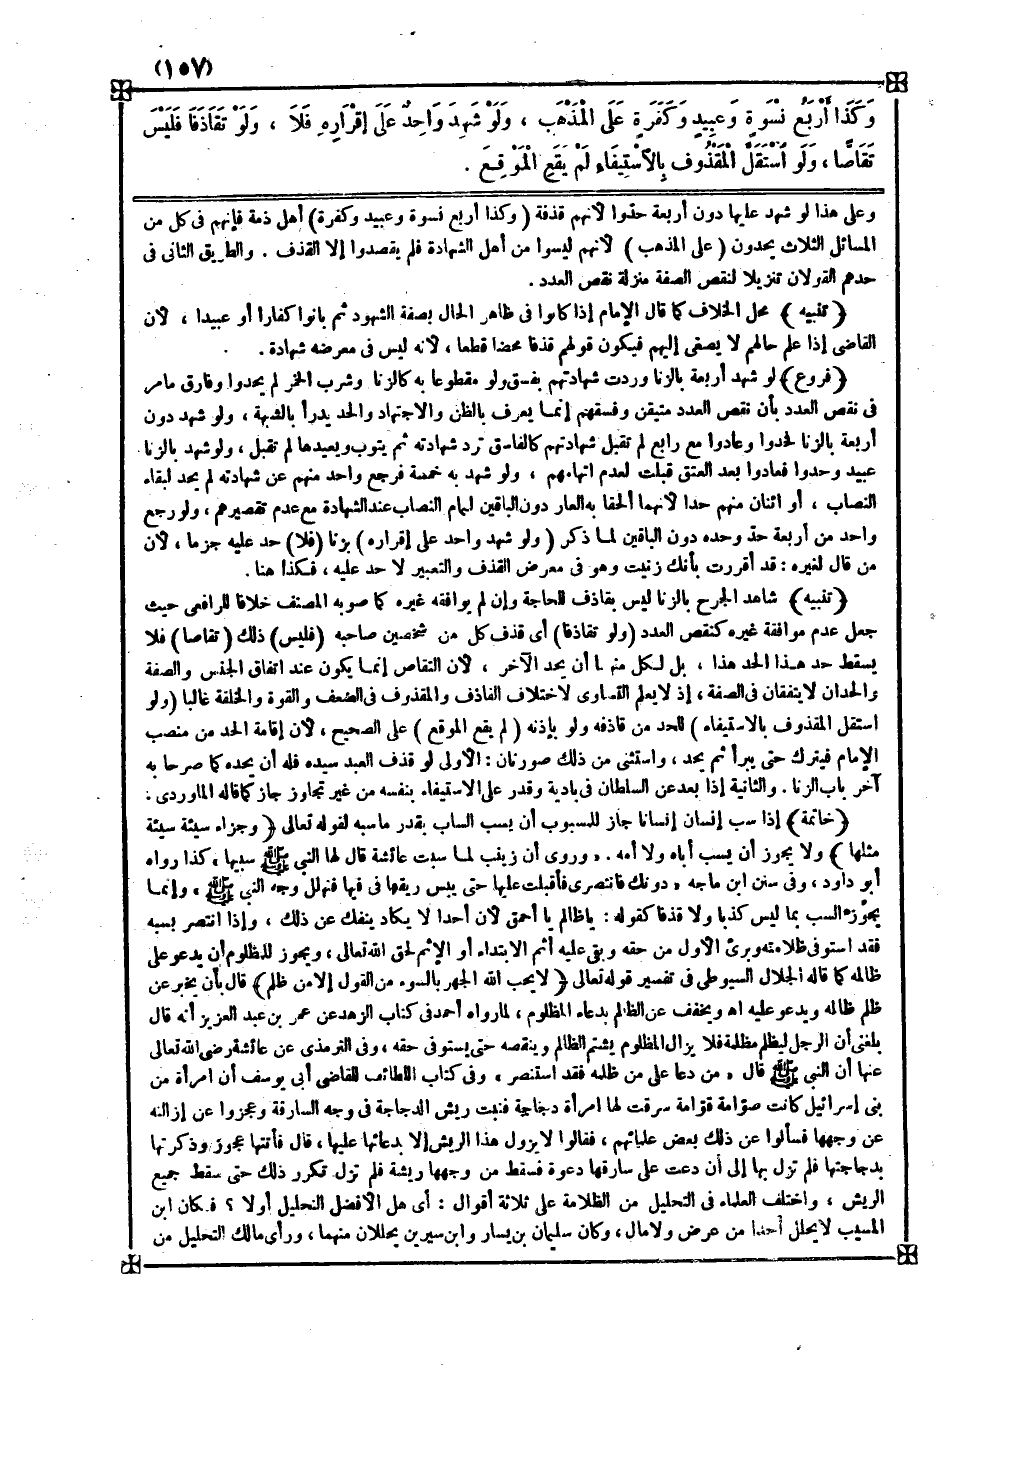 (١٥٧)
وَكَذَا أَرْبَعُ نِسْوَةٍ وَعَبِيدٍ وَكَفَرَةٍ عَلَى الْمَذْهَبِ ، وَلَوْ شَهِدَ وَاحِدٌ عَلَى إِقْرَارِهِ فَلَا ، وَلَوْ تَقَاذَفَا فَلَيْسَ
تَقَاصًّا ، وَلَوِ اسْتَقَلَّ الْمَقْذُوف بِالاسْتِيفَاءِ لَمْ يَقَعِ الْمَوْقِعَ .
وعلى هذا لو شهد عليها دون أربعة حدّوا لأنهم قذفة (وكذا أربع نسوة وعبيد وكفرة) أهل ذمة فإنهم فى كل من
المسائل الثلاث يحدون (على المذهب) لأنهم ليسوا من أهل الشهادة فلم يقصدوا إلا القذف . والطريق الثانى فى
حدهم القولان تنزيلا لنقص الصفة منزلة نقص العدد .
(تنبيه) محل الخلاف كما قال الإمام إذا كانوا فى ظاهر الحال بصفة الشهود ثم بانوا كفارا أو عبيدا ، لأن
القاضى إذا علم حالهم لا يصغى إليهم فيكون قولهم قذفا محضا قطعا ، لأنه ليس فى معرضه شهادة .
(فروع) لو شهد أربعة بالزنا وردت شهادتهم بفسق ولو مقطوعا به كالزنا وشرب الخمر لم يحدوا وفارق مامر
فى نقص العدد بأن نقص العدد متيقن وفسقهم إنما يعرف بالظن والاجتهاد والحد يدرأ بالشبهة ، ولو شهد دون
أربعة بالزنا لحدوا وعادوا مع رابع لم تقبل شهادتهم كالفاسق ترد شهادته ثم يتوب ويعيدها لم تقبل ، ولو شهد بالزنا
عبيد وحدوا فعادوا بعد العتق قبلت لعدم اتهامهم ، ولو شهد به خمسة فرجع واحد منهم عن شهادته لم يحد لبقاء
النصاب ، أو اثنان منهم حدا لأنهما ألحقا به العار دون الباقين لتمام النصاب عند الشهادة مع عدم تقصيرهم ، ولو رجع
واحد من أربعة حدّ وحده دون الباقين لما ذكر (ولو شهد واحد على إقراره) بزنا (فلا) حد عليه جزما ، لأن
من قال لغيره : قد أقررت بأنك زنيت وهو فى معرض القذف والتعيير لا حد عليه ، فكذا هنا .
(تنبيه) شاهد الجرح بالزنا ليس بقاذف للحاجة وإن لم يوافقه غيره كما صوبه المصنف خلافا للرافعى حيث
جعل عدم موافقة غيره كنقص العدد (ولو تقاذفا) أى قذف كل من شخصين صاحبه (فليس) ذلك (تقاصا) فلا
يسقط حد هذا الحد هذا ، بل لكل منهما أن يحد الآخر ، لأن التقاص إنما يكون عند اتفاق الجنس والصفة
والحدان لا يتفقان فى الصفة ، إذ لا يعلم التساوى لاختلاف القاذف والمقذوف فى الضعف والقوة والخلقة غالبا (ولو
استقل المقذوف بالاستيفاء) للحد من قاذفه ولو بإذنه (لم يقع الموقع) على الصحيح ، لأن إقامة الحد من منصب
الإمام فيترك حتى يبرأ ثم يحد ، واستثنى من ذلك صورتان : الأولى لو قذف العبد سيده فله أن يحده كما صرحا به
آخر باب الزنا . والثانية إذا بعد عن السلطان فى بادية وقدر على الاستيفاء بنفسه من غير تجاوز جاز كما قاله الماوردى .
(خاتمة) إذا سب إنسان إنسانا جاز للمسبوب أن يسب الساب بقدر ماسبه لقوله تعالى (وجزاء سيئة سيئة
مثلها) ولا يجوز أن يسب أباه ولا أمه . وروى أن زينب لما سبت عائشة قال لها النبى ﷺ سبيها ، كذا رواه
أبو داود ، وفى سنن ابن ماجه « دونك فانتصرى فأقبلت عليها حتى يبس ريقها فى فيها فتهلل وجه النبى ﷺ » ، وإنما
يجوّز السب بما ليس كذبا ولا قذفا كقوله : ياظالم يا أحمق لأن أحدا لا يكاد ينفك عن ذلك ، وإذا انتصر بسبه
فقد استوفى ظلامته وبرئ الأول من حقه وبقى عليه أثم الابتداء أو الإثم لحق الله تعالى ، ويجوز للمظلوم أن يدعو على
ظالمه كما قاله الجلال السيوطى فى تفسير قوله تعالى (لا يحب الله الجهر بالسوء من القول إلا من ظلم) قال بأن يخبر عن
ظلم ظالمه ويدعو عليه اه ويخفف عن الظالم بدعاء المظلوم ، لما رواه أحمد فى كتاب الزهد عن عمر بن عبد العزيز أنه قال
بلغنى أن الرجل ليظلم مظلمة فلا يزال المظلوم يشتم الظالم وينقصه حتى يستوفى حقه ، وفى الترمذى عن عائشة رضى الله تعالى
عنها أن النبى ﷺ قال « من دعا على من ظلمه فقد استنصر » وفى كتاب اللطائف للقاضى أبى يوسف أن امرأة من
بنى إسرائيل كانت صوّامة قوّامة سرقت لها امرأة دجاجة فنبت ريش الدجاجة فى وجه السارقة وعجزوا عن إزالته
عن وجهها فسألوا عن ذلك بعض علمائهم ، فقالوا لايزول هذا الريش إلا بدعائها عليها ، قال فأتتها عجوز وذكرتها
بدجاجتها فلم تزل بها إلى أن دعت على سارقها دعوة فسقط من وجهها ريشة فلم تزل تكرر ذلك حتى سقط جميع
الريش ، واختلف العلماء فى التحليل من الظلامة على ثلاثة أقوال : أى هل الأفضل التحليل أولا ؟ فكان ابن
المسيب لايحلل أحدا من عرض ولا مال ، وكان سليمان بن يسار وابن سيرين يحللان منهما ، ورأى مالك التحليل من